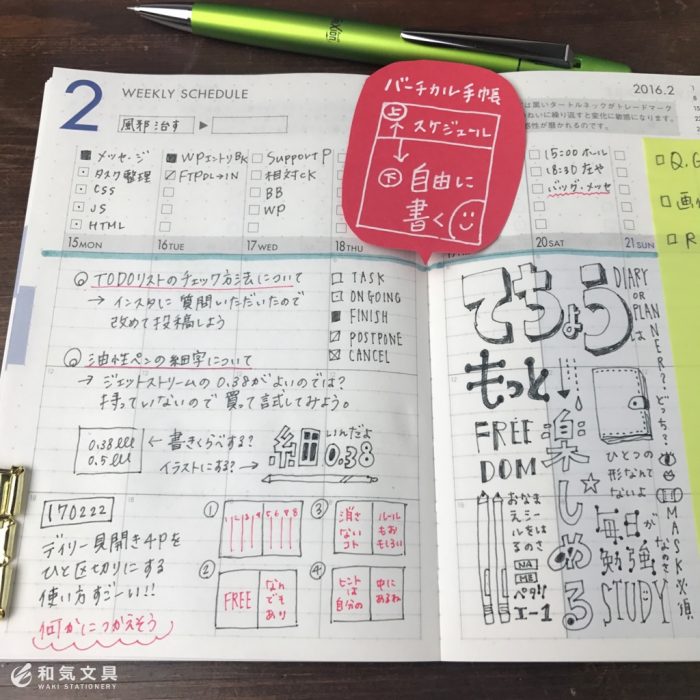 2
WEEKLY SCHEDULE
風邪治す
2016.2
は黒いタートルネックがトレードマーク
ねいに繰り返すと変化に敏感になります。
感性が磨かれるのです。
バーチカル手帳
上
スケジュール
下
自由に
書く
メッセージ
タスク整理
CSS
JS
HTML
WPエントリBK
FTPDL→IN
Support P
相対CK
BB
WP
15:00 ホール
18:30 たや
バッグ・メッセ
Q.G
画像
R
15 MON
16 TUE
17 WED
18 THU
20 SAT
21 SUN
Q TODOリストのチェック方法について
→ インスタに質問いただいたので
改めて投稿しよう
Q 油性ペンの細字について
→ ジェットストリームの0.38がよいのでは?
持っていないので買って試してみよう。
TASK
ONGOING
FINISH
POSTPONE
CANCEL
0.38
0.5
← 書きくらべする?
イラストにする? →
細いんだよ
0.38
170222
デイリー見開き4Pを
ひと区切りにする
使い方すごーい!!
何かにつかえそう
①
1 2 3 4 5 6 7 8
②
FREE
なんでもあり
③
消さないコト
ルールもおもしろい
④
ヒントは自分の
中にあるね
てちょう
もっと
FREE
DOM
楽しめる
DIARY
OR
PLANNER?
は
どっち?
ひとつの
形なんて
ないよ
おなまえシールをはるのさ
NA
ME
ペタリ
I-1
毎日が
勉強
なのさ
STUDY
MASK必須
和気文具
WAKI STATIONERY